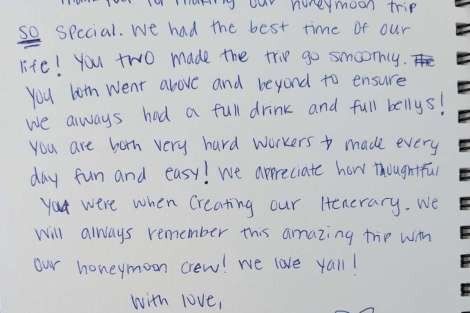 Thank you for making our honeymoon trip
SO special. We had the best time of our
life! You two made the trip go smoothly. The
You both went above and beyond to ensure
we always had a full drink and full bellys!
You are both very hard workers + made every
day fun and easy! We appreciate how thoughtful
you were when creating our Itenerary. We
will always remember this amazing trip with
our honeymoon crew! We love yall!
With love,